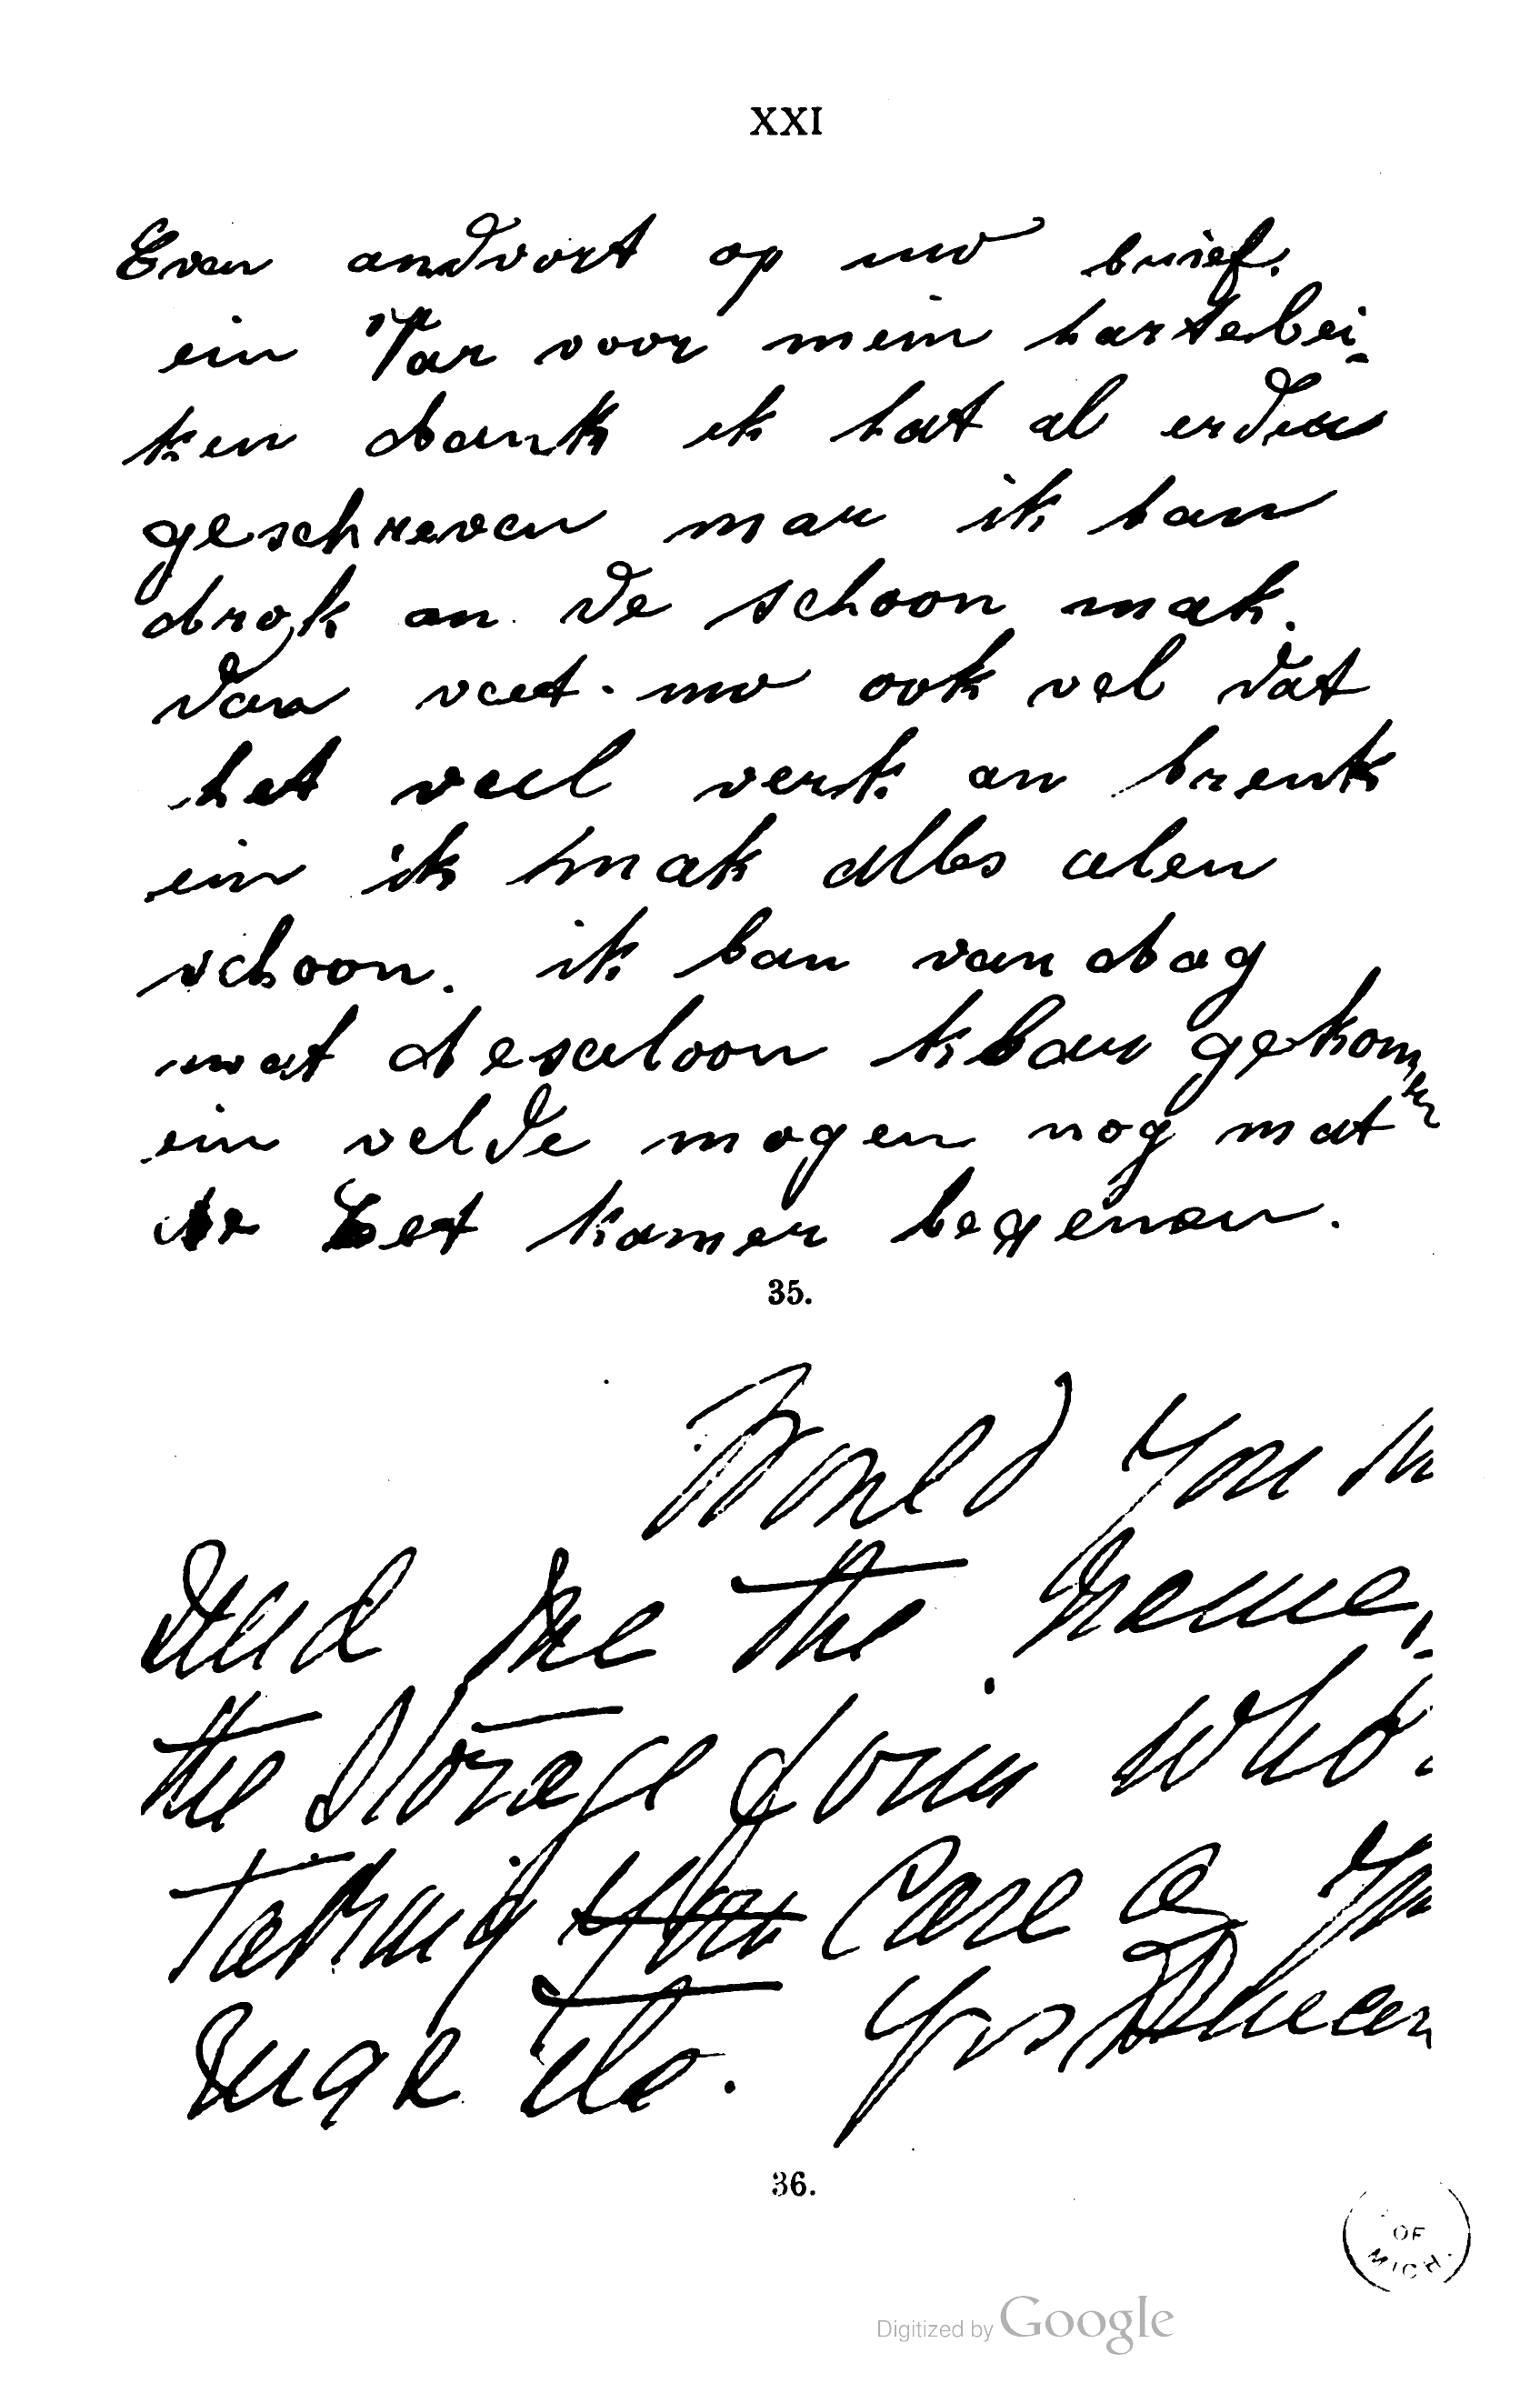 XXI
Even andvort op uw brief.
ein Var voor mein hartelei-
ken dank ik hat al erder
geschreven mar ik ban
drok an de schoon mak.
dan veet uw ook vel dat
het veel verk an brenk
ein ik mak alles alen
schoon. ik ban van dag
wat desaloon klaar gekomen
ein velde mogen nog mat
de Eet kamer begenen.
35.
Would you
send me the name,
the Storage down who
taking care
Yrs
36.
OF
MICH.
Digitized by Google